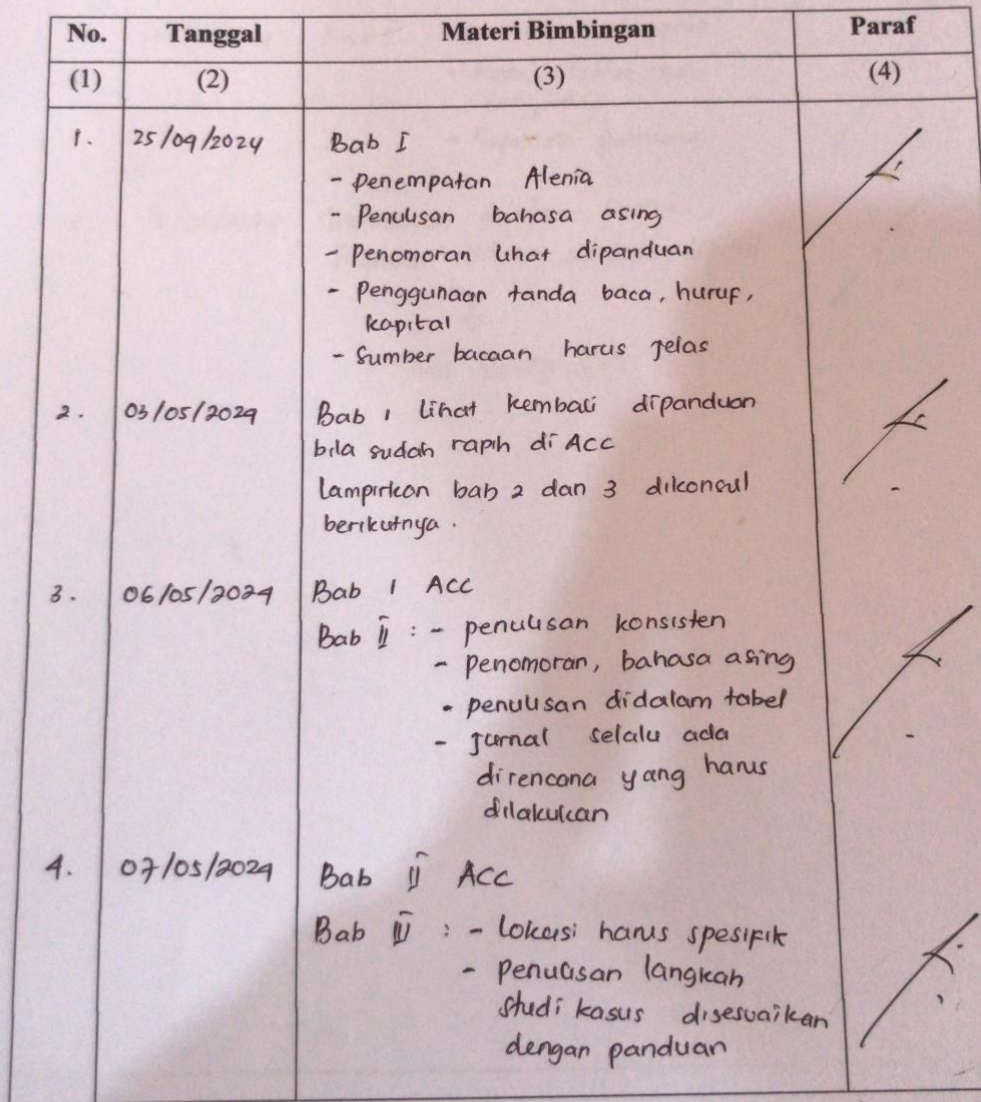 No. Tanggal Materi Bimbingan Paraf
(1) (2) (3) (4)
1. 25/04/2024 Bab I
- Penempatan Alenia
- Penulisan bahasa asing
- Penomoran lihat dipanduan
- Penggunaan tanda baca, huruf,
kapital
- Sumber bacaan harus jelas
2. 03/05/2024 Bab 1 lihat kembali dipanduan
bila sudah rapih di Acc
lampirkan bab 2 dan 3 dikonsul
berikutnya.
3. 06/05/2024 Bab 1 Acc
Bab II : - penulisan konsisten
- penomoran, bahasa asing
- penulisan didalam tabel
- Jurnal selalu ada
direncana yang harus
dilakukan
4. 07/05/2024 Bab II Acc
Bab III : - lokasi harus spesifik
- penulisan langkah
studi kasus disesuaikan
dengan panduan